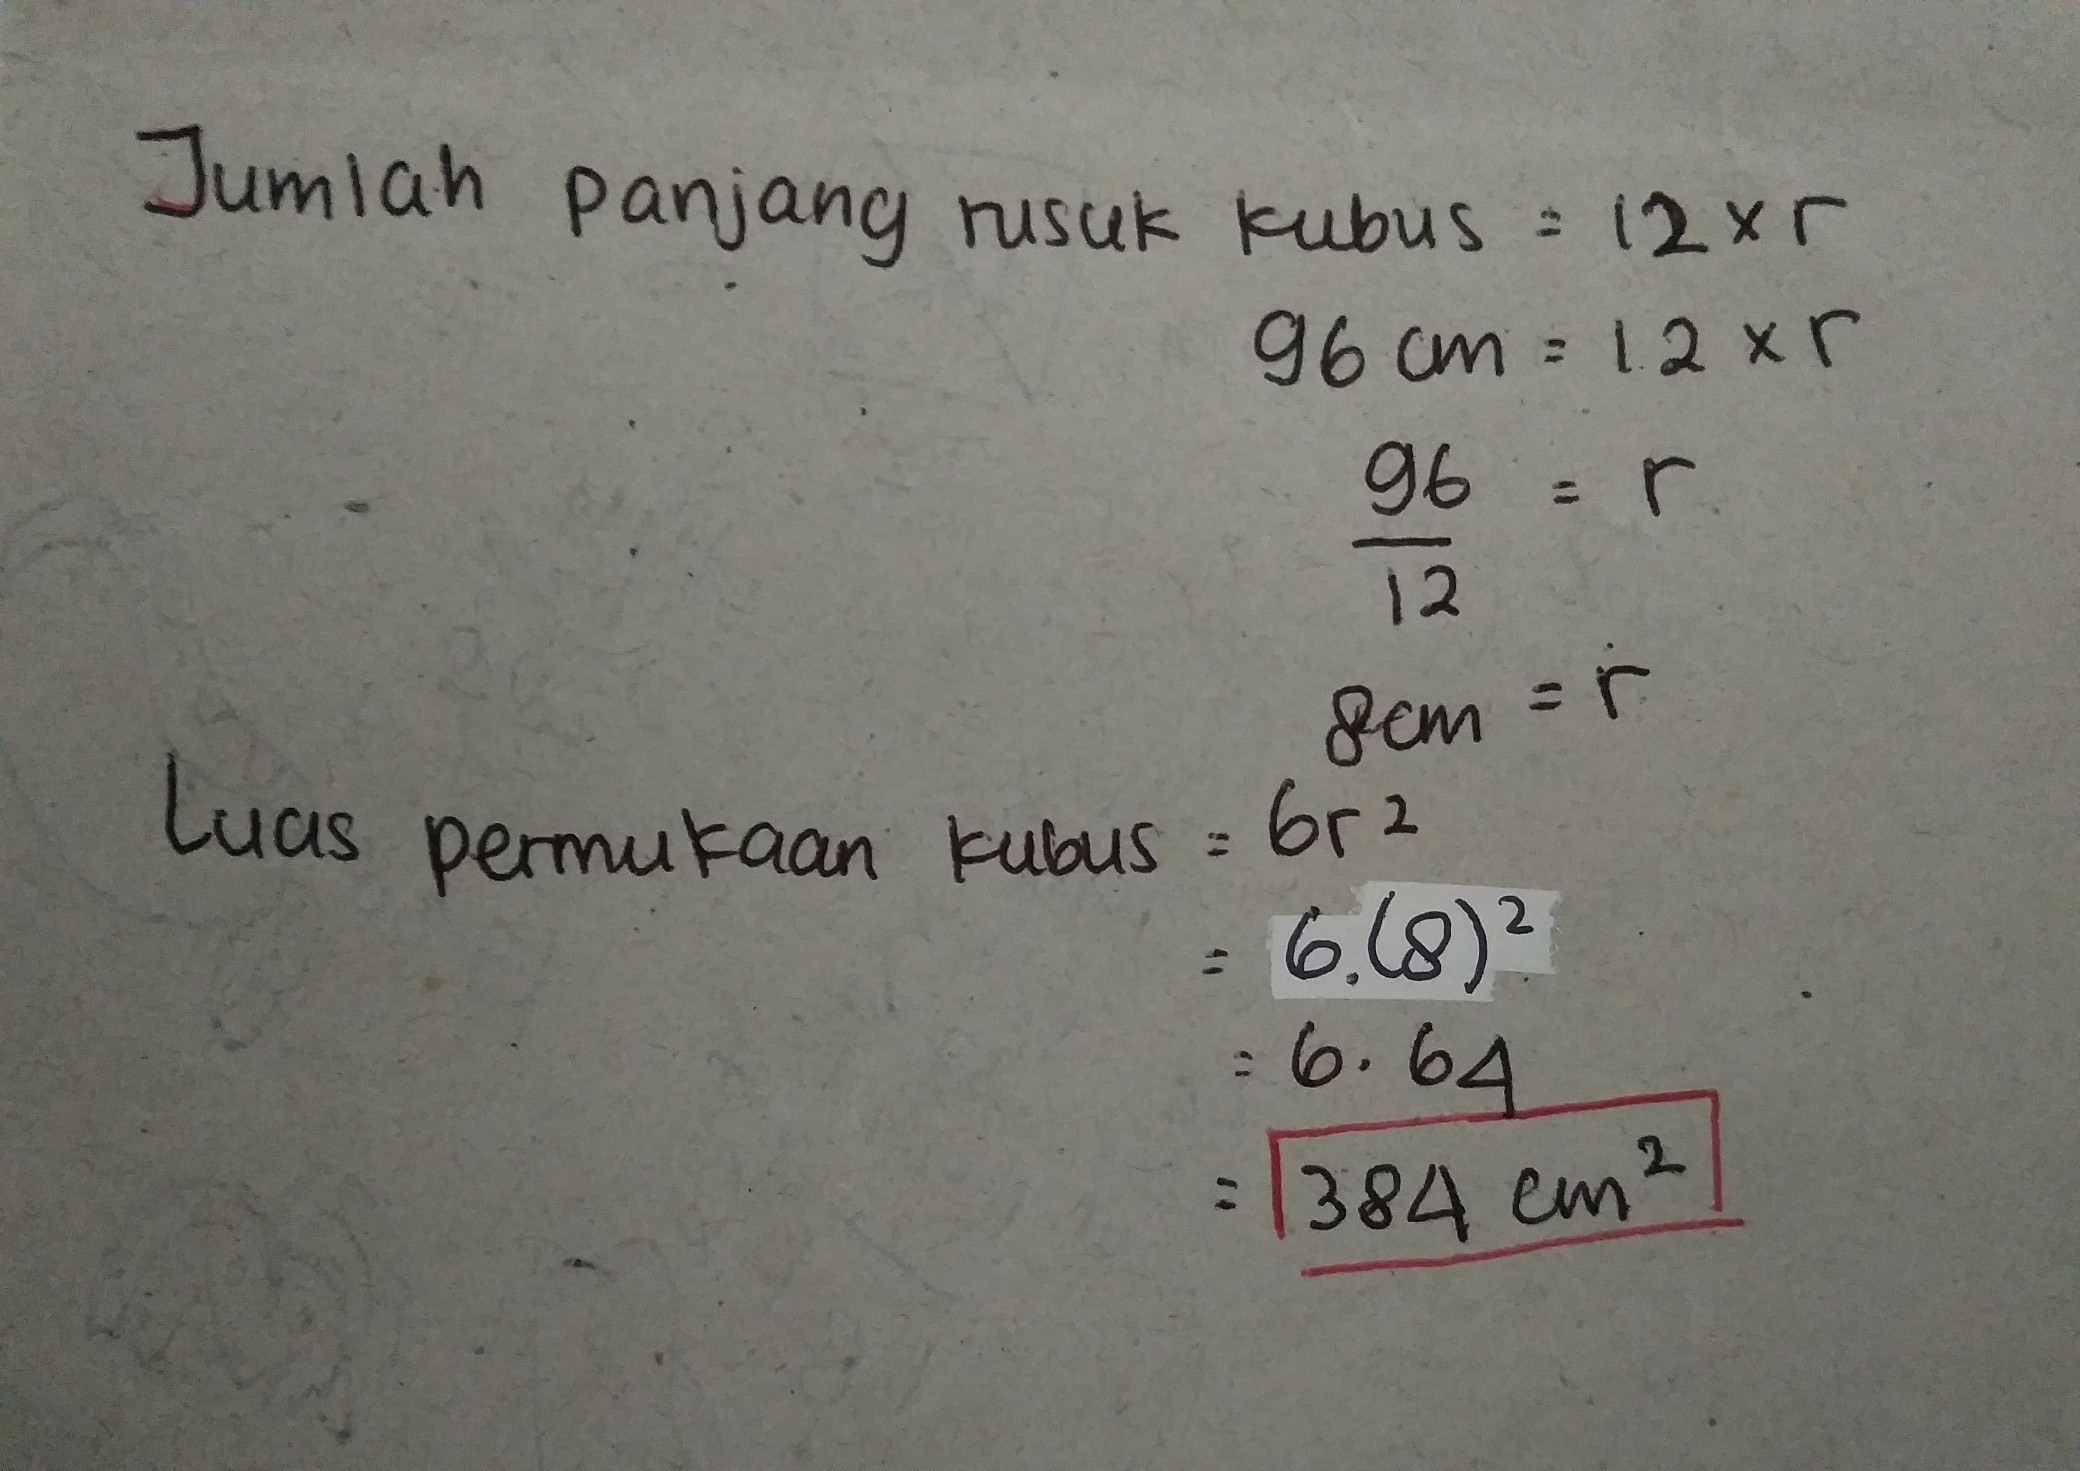 Jumlah panjang rusuk kubus = 12 x r
96 cm = 12 x r
96 = r
12
8cm = r
Luas permukaan kubus = 6r²
= 6.(8)²
= 6.64
= 384 cm²